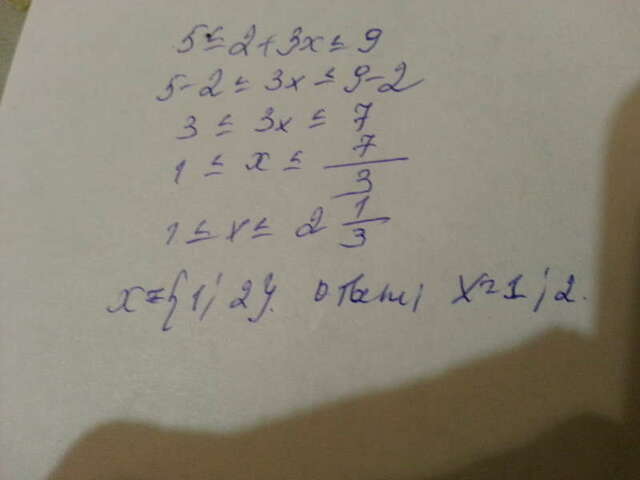 5 ≤ 2 + 3x ≤ 9
5 - 2 ≤ 3x ≤ 9 - 2
3 ≤ 3x ≤ 7
1 ≤ x ≤ 7/3
1 ≤ x ≤ 2 1/3
x = {1; 2}. ответ; x = 1; 2.